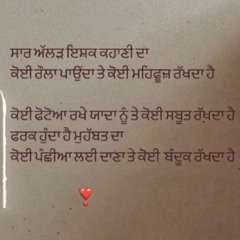 ਸਾਰ ਅੱਲੜ ਇਸ਼ਕ ਕਹਾਣੀ ਦਾ
ਕੋਈ ਰੌਲਾ ਪਾਉਂਦਾ ਤੇ ਕੋਈ ਮਹਿਫੂਜ਼ ਰੱਖਦਾ ਹੈ
ਕੋਈ ਫੋਟੋਆ ਰਖੇ ਯਾਦਾ ਨੂੰ ਤੇ ਕੋਈ ਸਬੂਤ ਰੱਖਦਾ ਹੈ
ਫਰਕ ਹੁੰਦਾ ਹੈ ਮੁਹੱਬਤ ਦਾ
ਕੋਈ ਪੰਛੀਆ ਲਈ ਦਾਣਾ ਤੇ ਕੋਈ ਬੰਦੂਕ ਰੱਖਦਾ ਹੈ